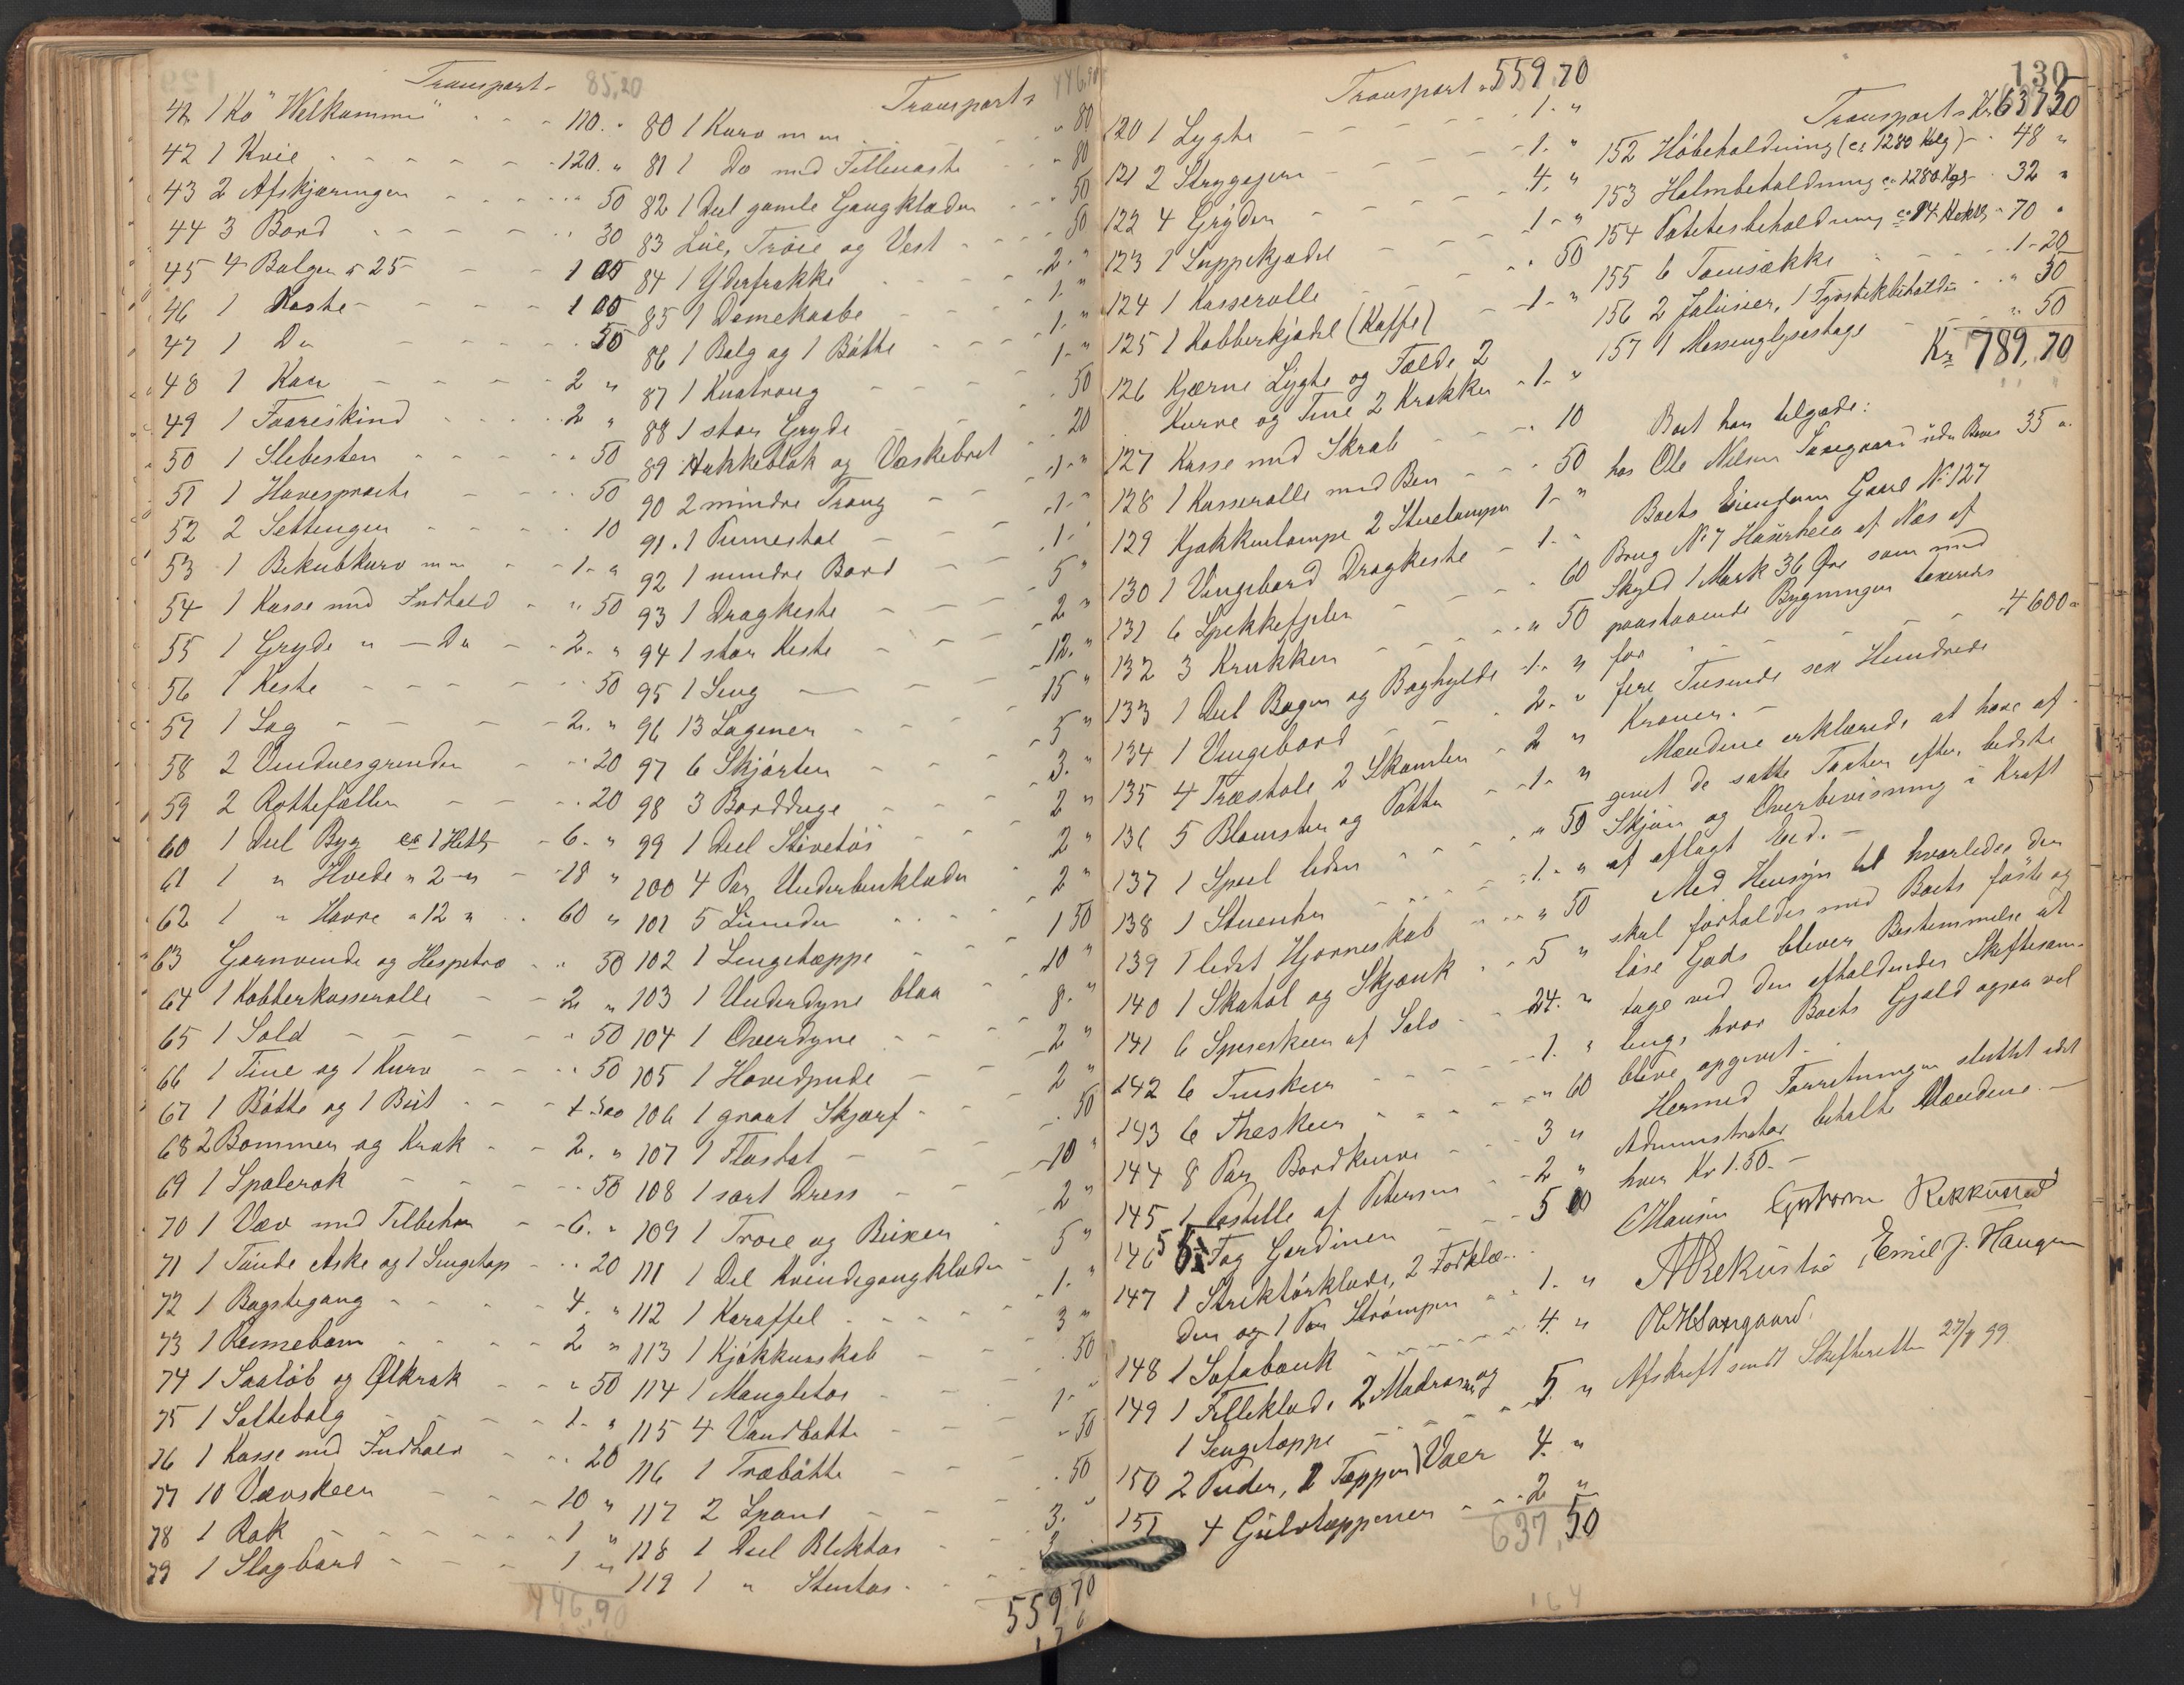 Transport - 85,20
42 1 Ko "Welkommen" - - 110. "
42 1 Kvie - - - - 120. "
43 2 Afskjæringer - - - " 50
44 3 Bord - - - - " 30
45 4 Balger à 25 - - 1 00
46 1 Kiste - - - 1 00
47 1 Do - - - 50
48 1 Kar - - - 2 "
49 1 Faareskind - - - 2 "
50 1 Slibesten - - - " 50
51 1 Havesprøite - - - 50
52 2 Settinger - - - 10
53 1 Bikubkurv m.m. - - 1 - "
54 1 Kasse med Indhold - " 50
55 1 Gryde " - Do - - 2. "
56 1 Kiste - - - - 50
57 1 Sag - - - 2. "
58 2 Vinduesgrinder - - " 20
59 2 Rottefæller - - - . 20
60 1 Deel Byg ca 1 Hktlr - 6. "
61 1 " Hvede " 2 - " - 18 "
62 1 " Havre " 12 " .. 60 "
63 Garnvinde og Hespetræ - .. 50
64 1 Kobberkasserolle - - 2 "
65 1 Sold - - - - " 50
66 1 Tine og 1 Kurv - - - " 50
67 1 Bøtte og 1 Bøt - - -
68 2 Bommer og Krak - - 2. "
69 1 Spolerok - - - - 50
70 1 Væv med Tilbehør - - 6. "
71 1 Tønde Aske og 1 Sengetæp - .. 20
72 1 Bogstegang - - - - 4. "
73 1 Rennebom - - - 2 "
74 1 Saaløb og Ølkrak - - " 50
75 1 Saltebalg - - - - 1 - "
76 1 Kasse med Indhold - - .. 20
77 10 Vævskeer - - - 10 "
78 1 Rok - - - - 1 "
79 1 Slagbord - - - 1 "
446,90
Transport " 446,90
80 1 Kurv m m - - " 80
81 1 Do med Filleraste " 80
82 1 Deel gamle Gangklæder - - 50
83 Lue, Trøie og Vest - - - 50
84 1 Yderfrakke - - - 2. "
85 1 Damekaabe - - - 1. "
86 1 Balg og 1 Bøtte - - - 1. "
87 1 Knatraug - - - 1 - "
88 1 stor Gryde - - - 50
89 Hakkeblok og Vaskebret - . 20
90 2 mindre Traug - - - 1 - "
91. 1 Pinnestol - - - 1. -
92 1 mindre Bord - - - 1 -
93 1 Dragkiste - - - 5 "
94 1 stor Kiste - - - 2 "
95 1 Seng - - - 12. "
96 13 Lagener - - - 15 "
97 6 Skjørter - - - 5 "
98 3 Bordduge - - - 3. "
99 1 Deel Stivetøi - - - 2 "
100 4 Par Underbenklæder - 2 "
101 5 Linneder - - - 2 "
102 1 Sengetæppe - - - 1 50
103 1 Underdyne blaa - 10 "
104 1 Overdyne - - - 8. "
105 1 Hovedpude - - - 2 "
106 1 graat Skjærf - - - 2 "
107 1 Floshat - - - . 50
108 1 sort Dress - - - 10 "
109 1 Troie og Buxer - 2 "
111 1 Del Kvindegangklæder - 5 "
112 1 Karaffel - - - 1. "
113 1 Kjøkkenskab - - 3 "
114 1 Mangletøi - - . 50
115 4 Vandbøtte - - - 1 - "
116 1 Træbøtte - - - " 50
117 2 Spand - - - . 50
118 1 Deel Bliktøi - - 3. "
119 1 " Stentøi - - - 3
559,70
Transport " 559,70
120 1 Lygte - - - - - 1. "
121 2 Strygejern - - - - 1. "
122 4 Gryder - - - - 4. "
123 1 Suppekjedel - - - 1 - "
124 1 Kasserolle - - - " 50
125 1 Kobberkjedel (Kaffe) - - 1 - "
126 Kjærne Lygte og Fælde 2
Kurve og Tine 2 Krakker - 1 - "
127 Kasse med Skrab - - - . 10
128 1 Kasserolle med Ben - - - 50
129 Kjøkkenlampe 2 Stuelamper 1 - "
130 1 Vingebord Dragkiste - - 1 - "
131 6 Spekkefjeler - - - " 60
132 3 Krukker - - - - " 50
133 1 Deel Bøger og Boghylde - 1 - "
134 1 Vingebord - - - 2. "
135 4 Træstole 2 Skamler - 2 "
136 5 Blomster og Potter - - 1 - "
137 1 Speil liden - - - - " 50
138 1 Stueuhr - - - - 1. "
139 1 lidet Hjørneskab - - - " 50
140 1 Skatol og Skjænk - - - 5 "
141 6 Spiseskeer af Sølv - - 24. "
142 6 Tinskeer - - - - 1. "
143 6 Theskeer - - - - " 60
144 8 Par Bordknive - - - 3 "
145 1 Postille af Petersen - - 2 "
146 5 Fag Gardiner - - - 5 00
147 1 Striktørklæde, 2 Forklæ-
der og 1 Par Strømper - - 1. "
148 1 Sofabænk - - - - 4. "
149 1 Filleklæde 2 Madrasser og
1 Sengetæppe - - - - 5. "
150 2 Puder, 2 Tæpper Vaer 4. "
151 4 Gulvtæpperier - - - 2 "
637,50
130
Transport " Kr 637,20
152 Høbeholdning (ca 1280 Klg) - - 48 "
153 Halmbeholdning ca 1280 Kgr - 32 "
154 Potetesbeholdning ca 14 Hektl - 70 "
155 6 Tomsække - - - - 1 - 20
156 2 Jalusier, 1 Fyrstikbeholder - - " 50
157 1 Messinglysestage - - - " 50
Kr 789,70
Boet har tilgode:
hos Ole Nilsen Saxegaard uden Bevis 35 "
Boets Eiendom Gaard No 127
Brug No 7 Haserheia af Næs af
Skyld 1 Mark 36 Øre som med
paastaaende Bygninger taxeredes
for - - - - - 4600 "
fire Tusinde sex Hundrede
Kroner. -
Mændene erklærede at have af-
givet de satte Taxter efter bedste
Skjøn og Overbevisning i Kraft
af aflagt Eed. -
Med Hensyn til hvorledes der
skal forholdes med Boets faste og
løse Gods bliver Bestemmelse at
tage ved den afholdendes Skiftesam-
ling, hvor Boets Gjæld ogsaa vil
blive opgivet. -
Hermed Forretningen sluttet idet
Administrator betalte Mændene
hver Kr 1.50. -
CHansen Guttorm Rekkustad
Emil J. Haugen
Afskrift sendt Skifteretten 27/4 99